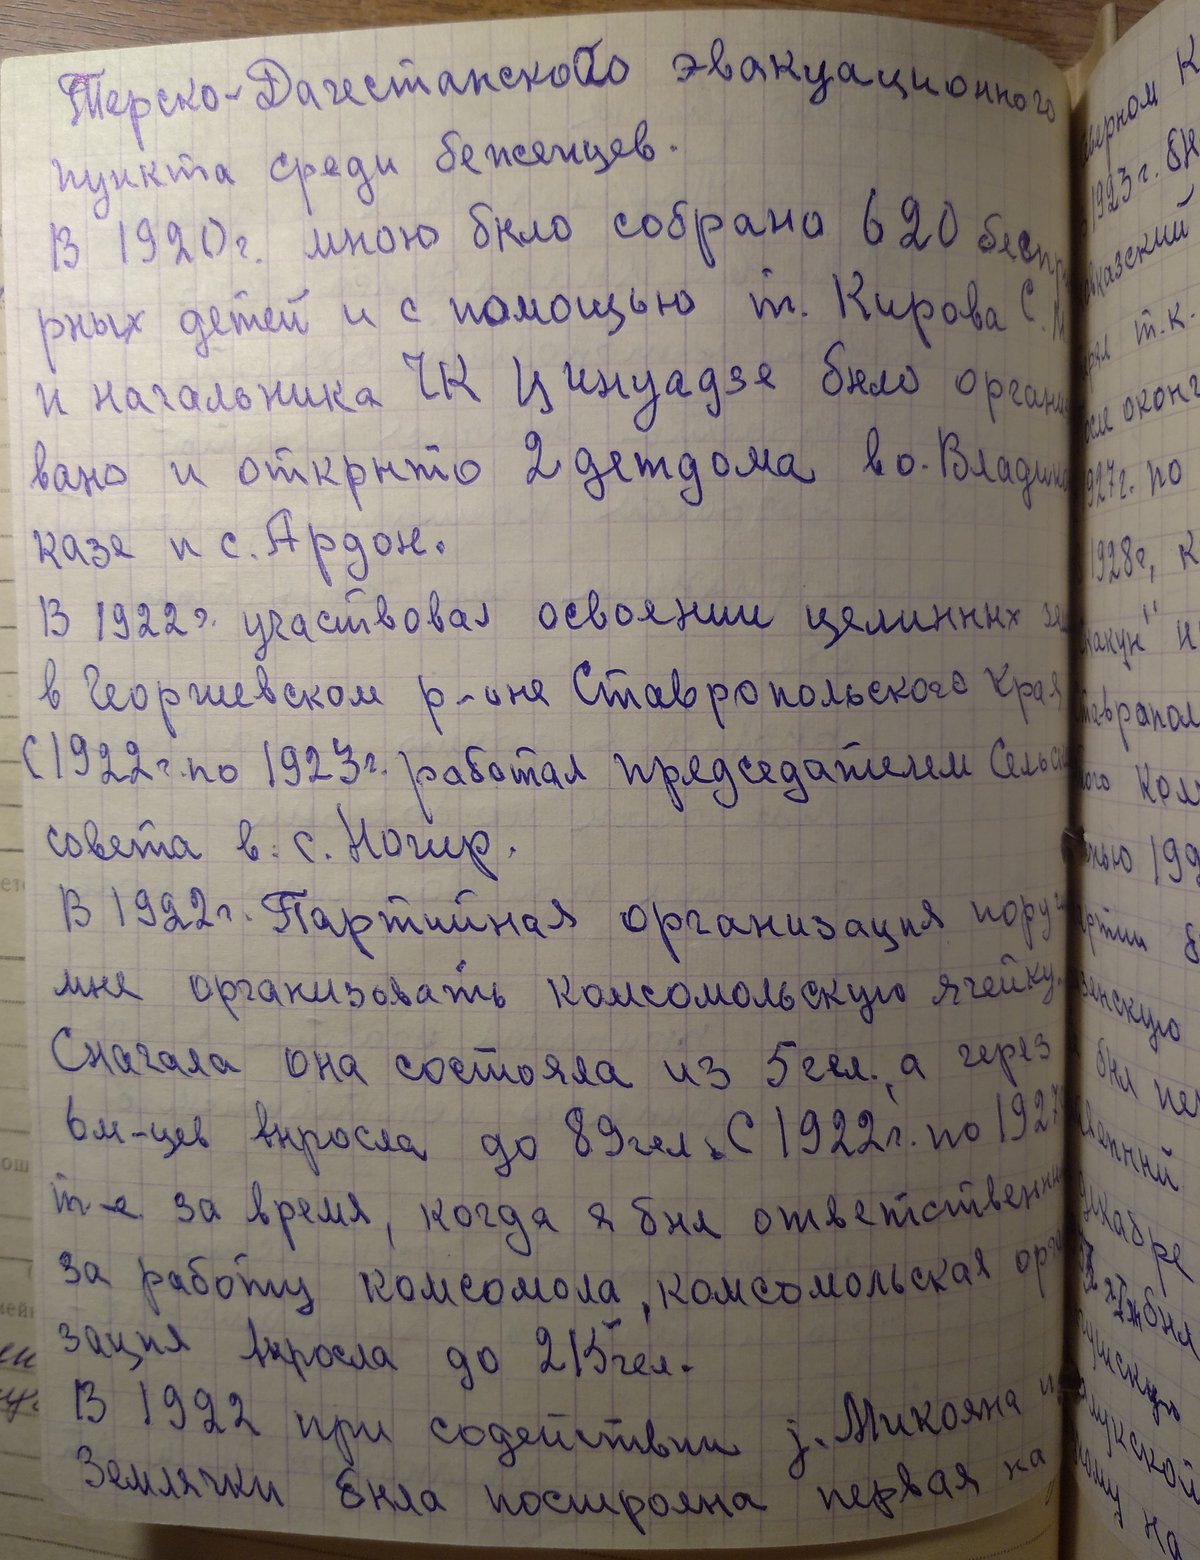 Терско-Дагестанского эвакуационного
пункта среди беженцев.
В 1920г. мною было собрано 620 беспр
рных детей и с помощью т. Кирова С.
и начальника ЧК Цинуадзе было органи
вано и открыто 2 детдома в о. Владика
казе и с. Ардон.
В 1922г. участвовал освоении целинных зе
в Георгиевском р-оне Ставропольского Края
С 1922г. по 1923г. работал председателем Сельск
совета в. с. Ногир.
В 1922г. Партийная организация поруч
мне организовать комсомольскую ячейку.
Сначала она состояла из 5 чел., а через
6м-цев выросла до 89 чел. С 1922г. по 1927
т-е за время, когда я был ответственны
за работу комсомола, комсомольская орга
зация выросла до 215 чел.
В 1922 при содействии т. Микояна и
Землячки была построена первая на
верном К
1923г.
вказский
т.к.
927г. по
1928г, К
какун" и
ого Ком
зенскую
был пе
декабре
был
ому на